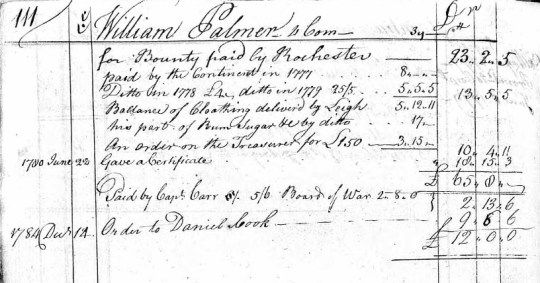 111 William Palmer 3y Dr
for Bounty paid by Rochester 23 2 5
paid by the Continent in 1777 8 " "
Ditto in 1778 ditto in 1779 25/5 5 5 5 13 5 5
Ballance of Cloathing deliverd by Leigh 5 12 11
his part of Rum Sugar &c by ditto 17
An order on the Treasurer for £150 3 15 10 4 11
1780 June 22 Gave a Certificate 18 15 3
£ 65 8
Paid by Capt Carr 5/6 Board of War 2 8 0 2 13 6
1784 Decr 14 Order to Daniel Cook 9 6 6
£ 12 0 0